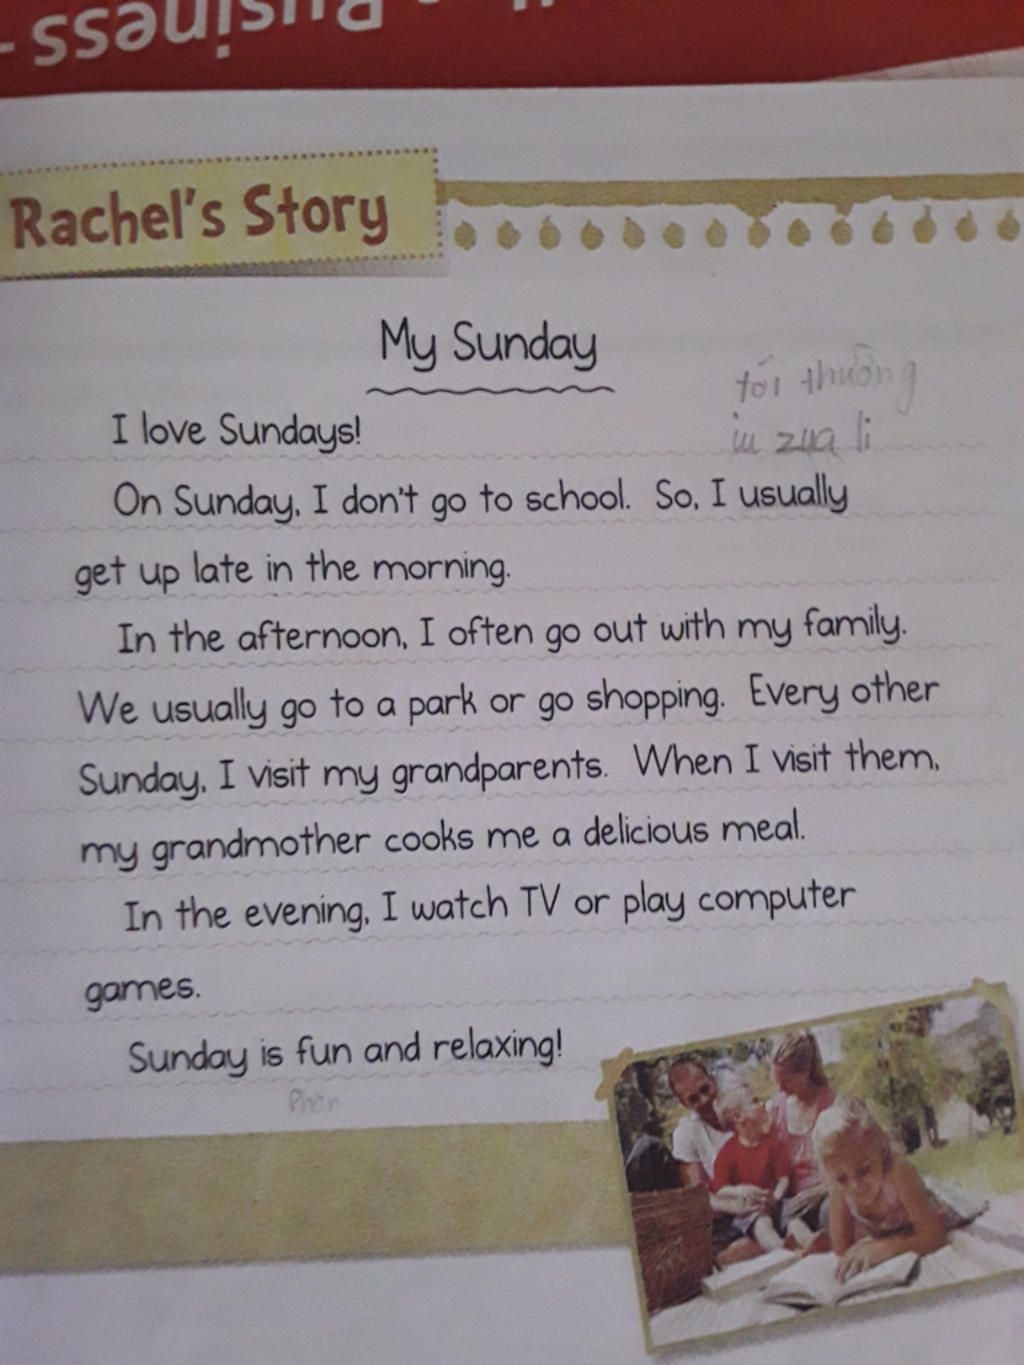 Business -
Rachel's Story
My Sunday
tôi thường
I love Sundays!
iu zua li
On Sunday, I don't go to school. So, I usually
get up late in the morning.
In the afternoon, I often go out with my family.
We usually go to a park or go shopping. Every other
Sunday, I visit my grandparents. When I visit them,
my grandmother cooks me a delicious meal.
In the evening, I watch TV or play computer
games.
Sunday is fun and relaxing!
Phăn